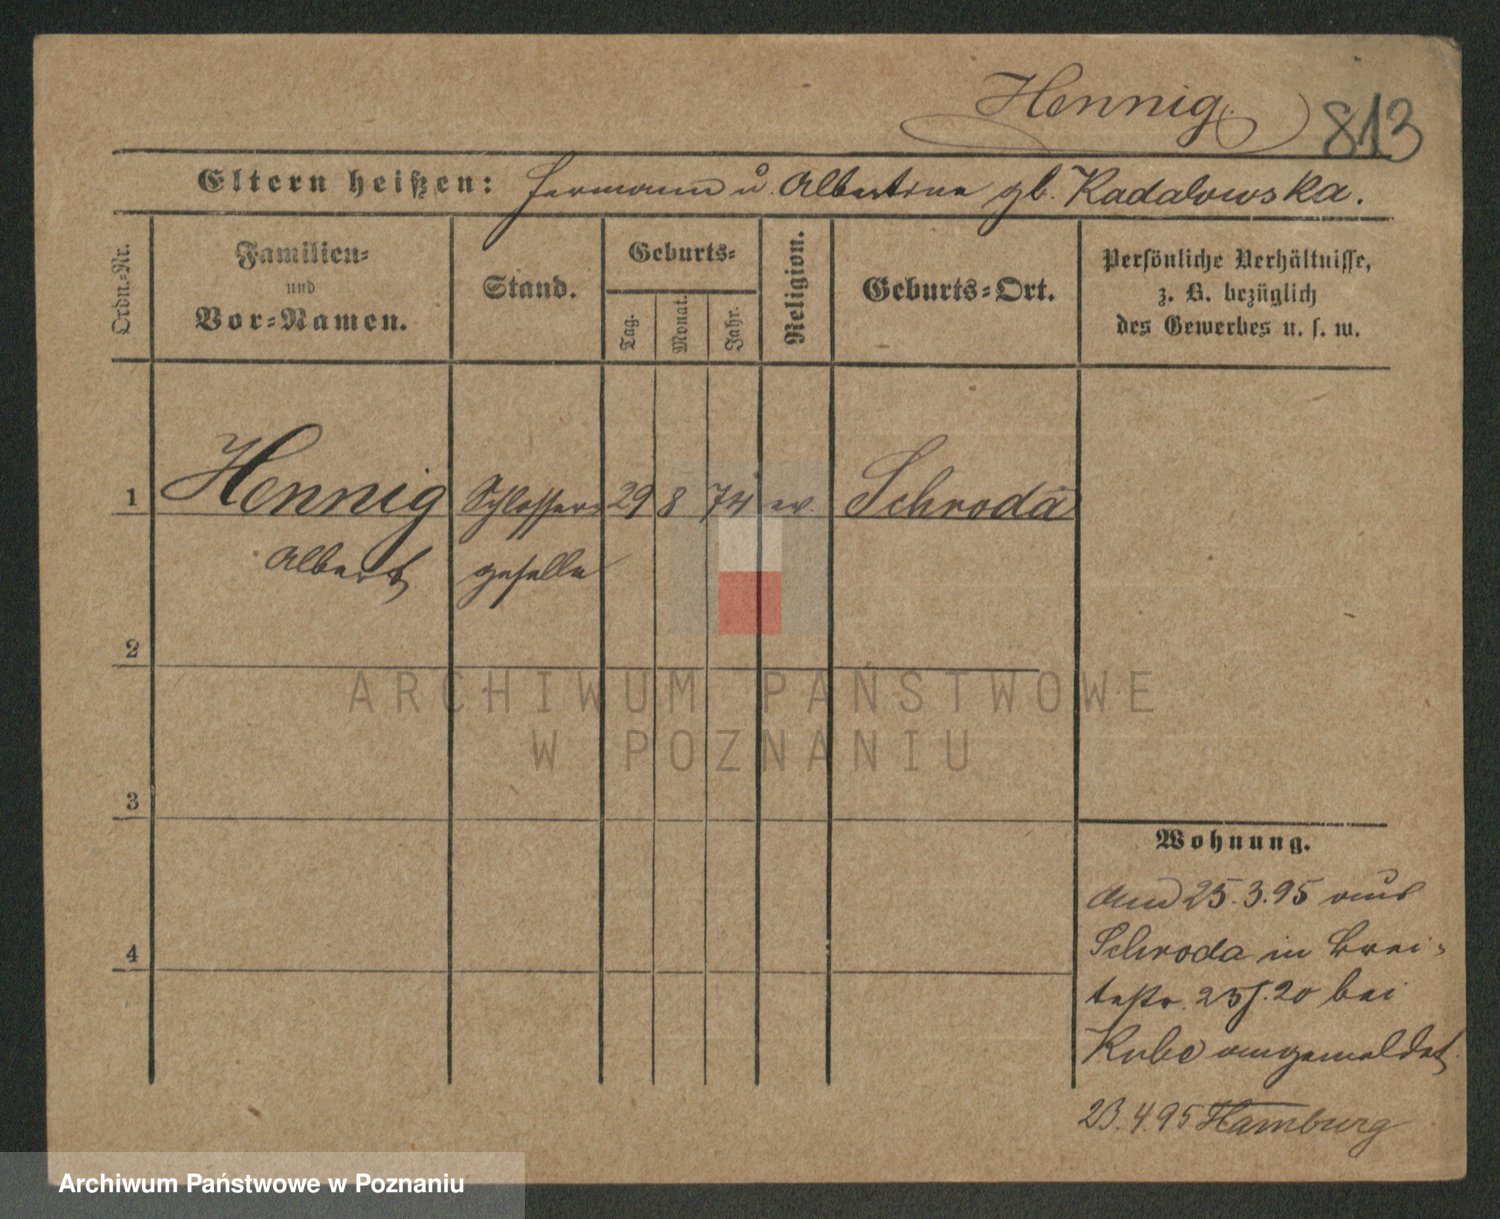 Hennig.
813
Eltern heißen: Hermann u. Albertine gb. Kadalowska.
Ordn.-Nr.
Familien-
und
Vor-Namen.
Stand.
Geburts-
Tag.
Monat.
Jahr.
Religion.
Geburts-Ort.
Persönliche Verhältnisse,
z. B. bezüglich
des Gewerbes u. s. w.
1 Hennig Schlosser- 29 8 74 ev. Schroda
Albert geselle
2
ARCHIWUM PAŃSTWOWE
W POZNANIU
3
Wohnung.
Am 25.3.95 aus
Schroda in Brei-
testr. 20 bei
4
Kube angemeldet
23.4.95 Hamburg
Archiwum Państwowe w Poznaniu